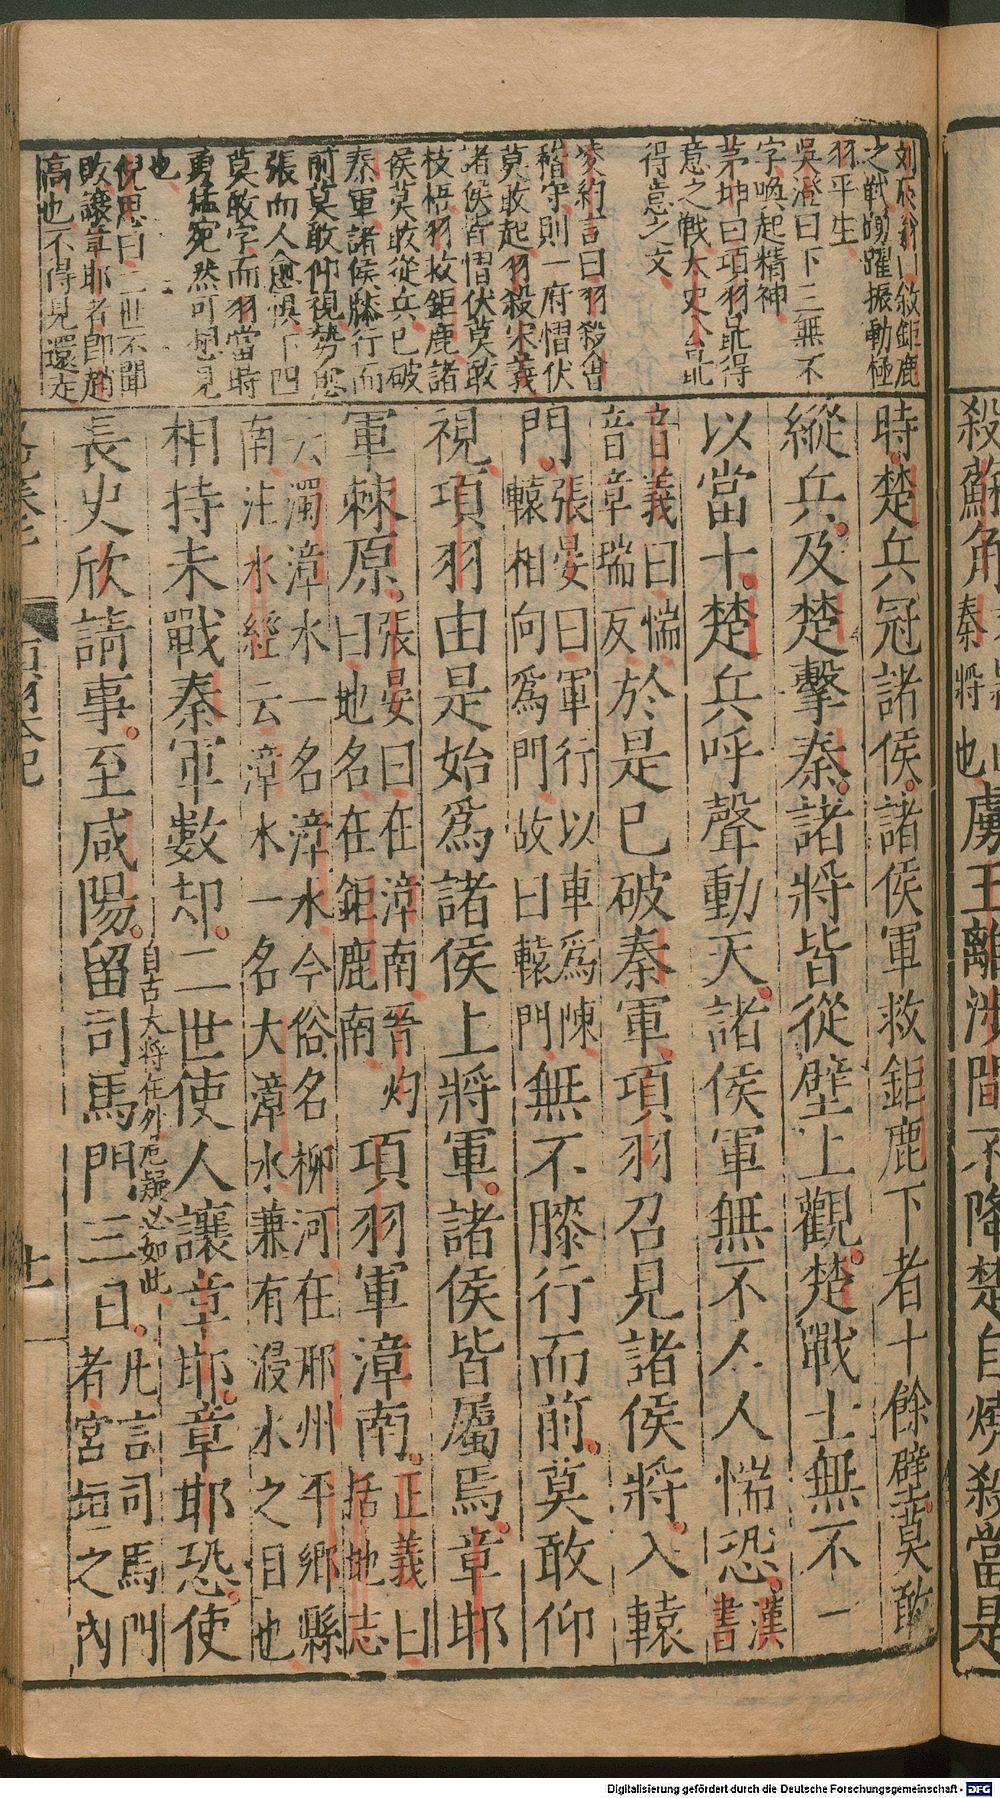 劉辰翁曰敘鉅鹿
之戰踴躍振動極
羽平生
吳澄曰下三無不
字喚起精神
茅坤曰項羽最得
意之戰太史公最
得意之文
凌約言曰羽殺會
稽守則一府慴伏
莫敢起羽殺宋義
諸侯皆慴伏莫敢
枝梧羽救鉅鹿諸
侯莫敢從兵已破
秦軍諸侯膝行而
前莫敢仰視勢愈
張而人愈懼下四
莫敢字而羽當時
勇猛宛然可想見
也
倪思曰二世不聞
敗讓章邯者即趙
高也不得見還走
時楚兵冠諸侯諸侯軍救鉅鹿下者十餘壁莫敢
縱兵及楚擊秦諸將皆從壁上觀楚戰士無不一
以當十楚兵呼聲動天諸侯軍無不人人惴恐漢書
音義曰惴
音章瑞反於是已破秦軍項羽召見諸侯將入轅
門張晏曰軍行以車爲陳
轅相向爲門故曰轅門無不膝行而前莫敢仰
視項羽由是始爲諸侯上將軍諸侯皆屬焉章邯
軍棘原張晏曰在漳南晉灼
曰地名在鉅鹿南項羽軍漳南正義曰
括地志
云濁漳水一名漳水今俗名柳河在邢州平鄉縣
南注水經云漳水一名大漳水兼有浸水之目也
相持未戰秦軍數却二世使人讓章邯章邯恐使
自古大將在外危疑必如此
長史欣請事至咸陽留司馬門三日凡言司馬門
者宮垣之內
十一
殺蘇角
秦將
也虜王離涉間不降楚自燒殺當是
Digitalisierung gefördert durch die Deutsche Forschungsgemeinschaft - DFG